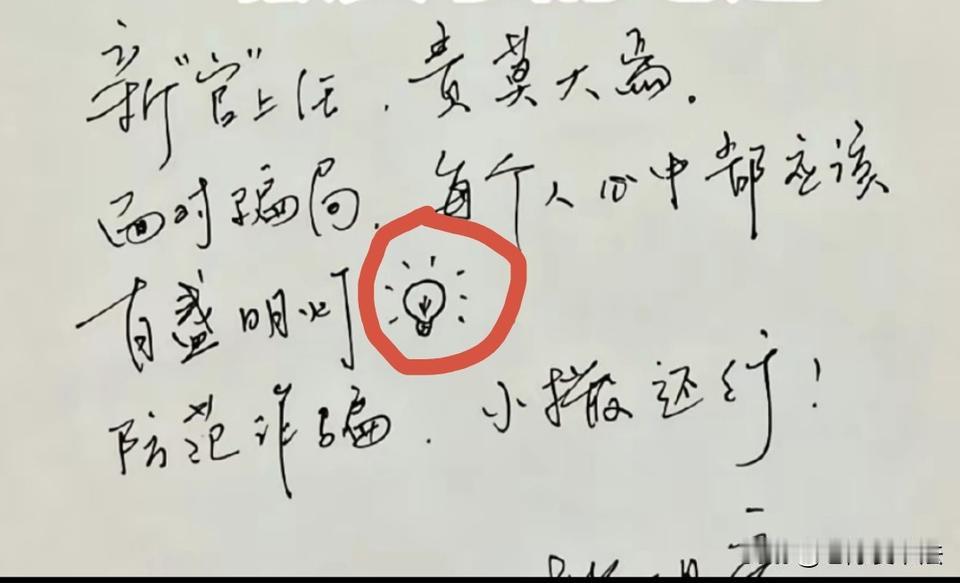 新"官"上任，责莫大焉.
面对骗局，每个人心中都应该
有盏明灯
防范诈骗，小撒还行！